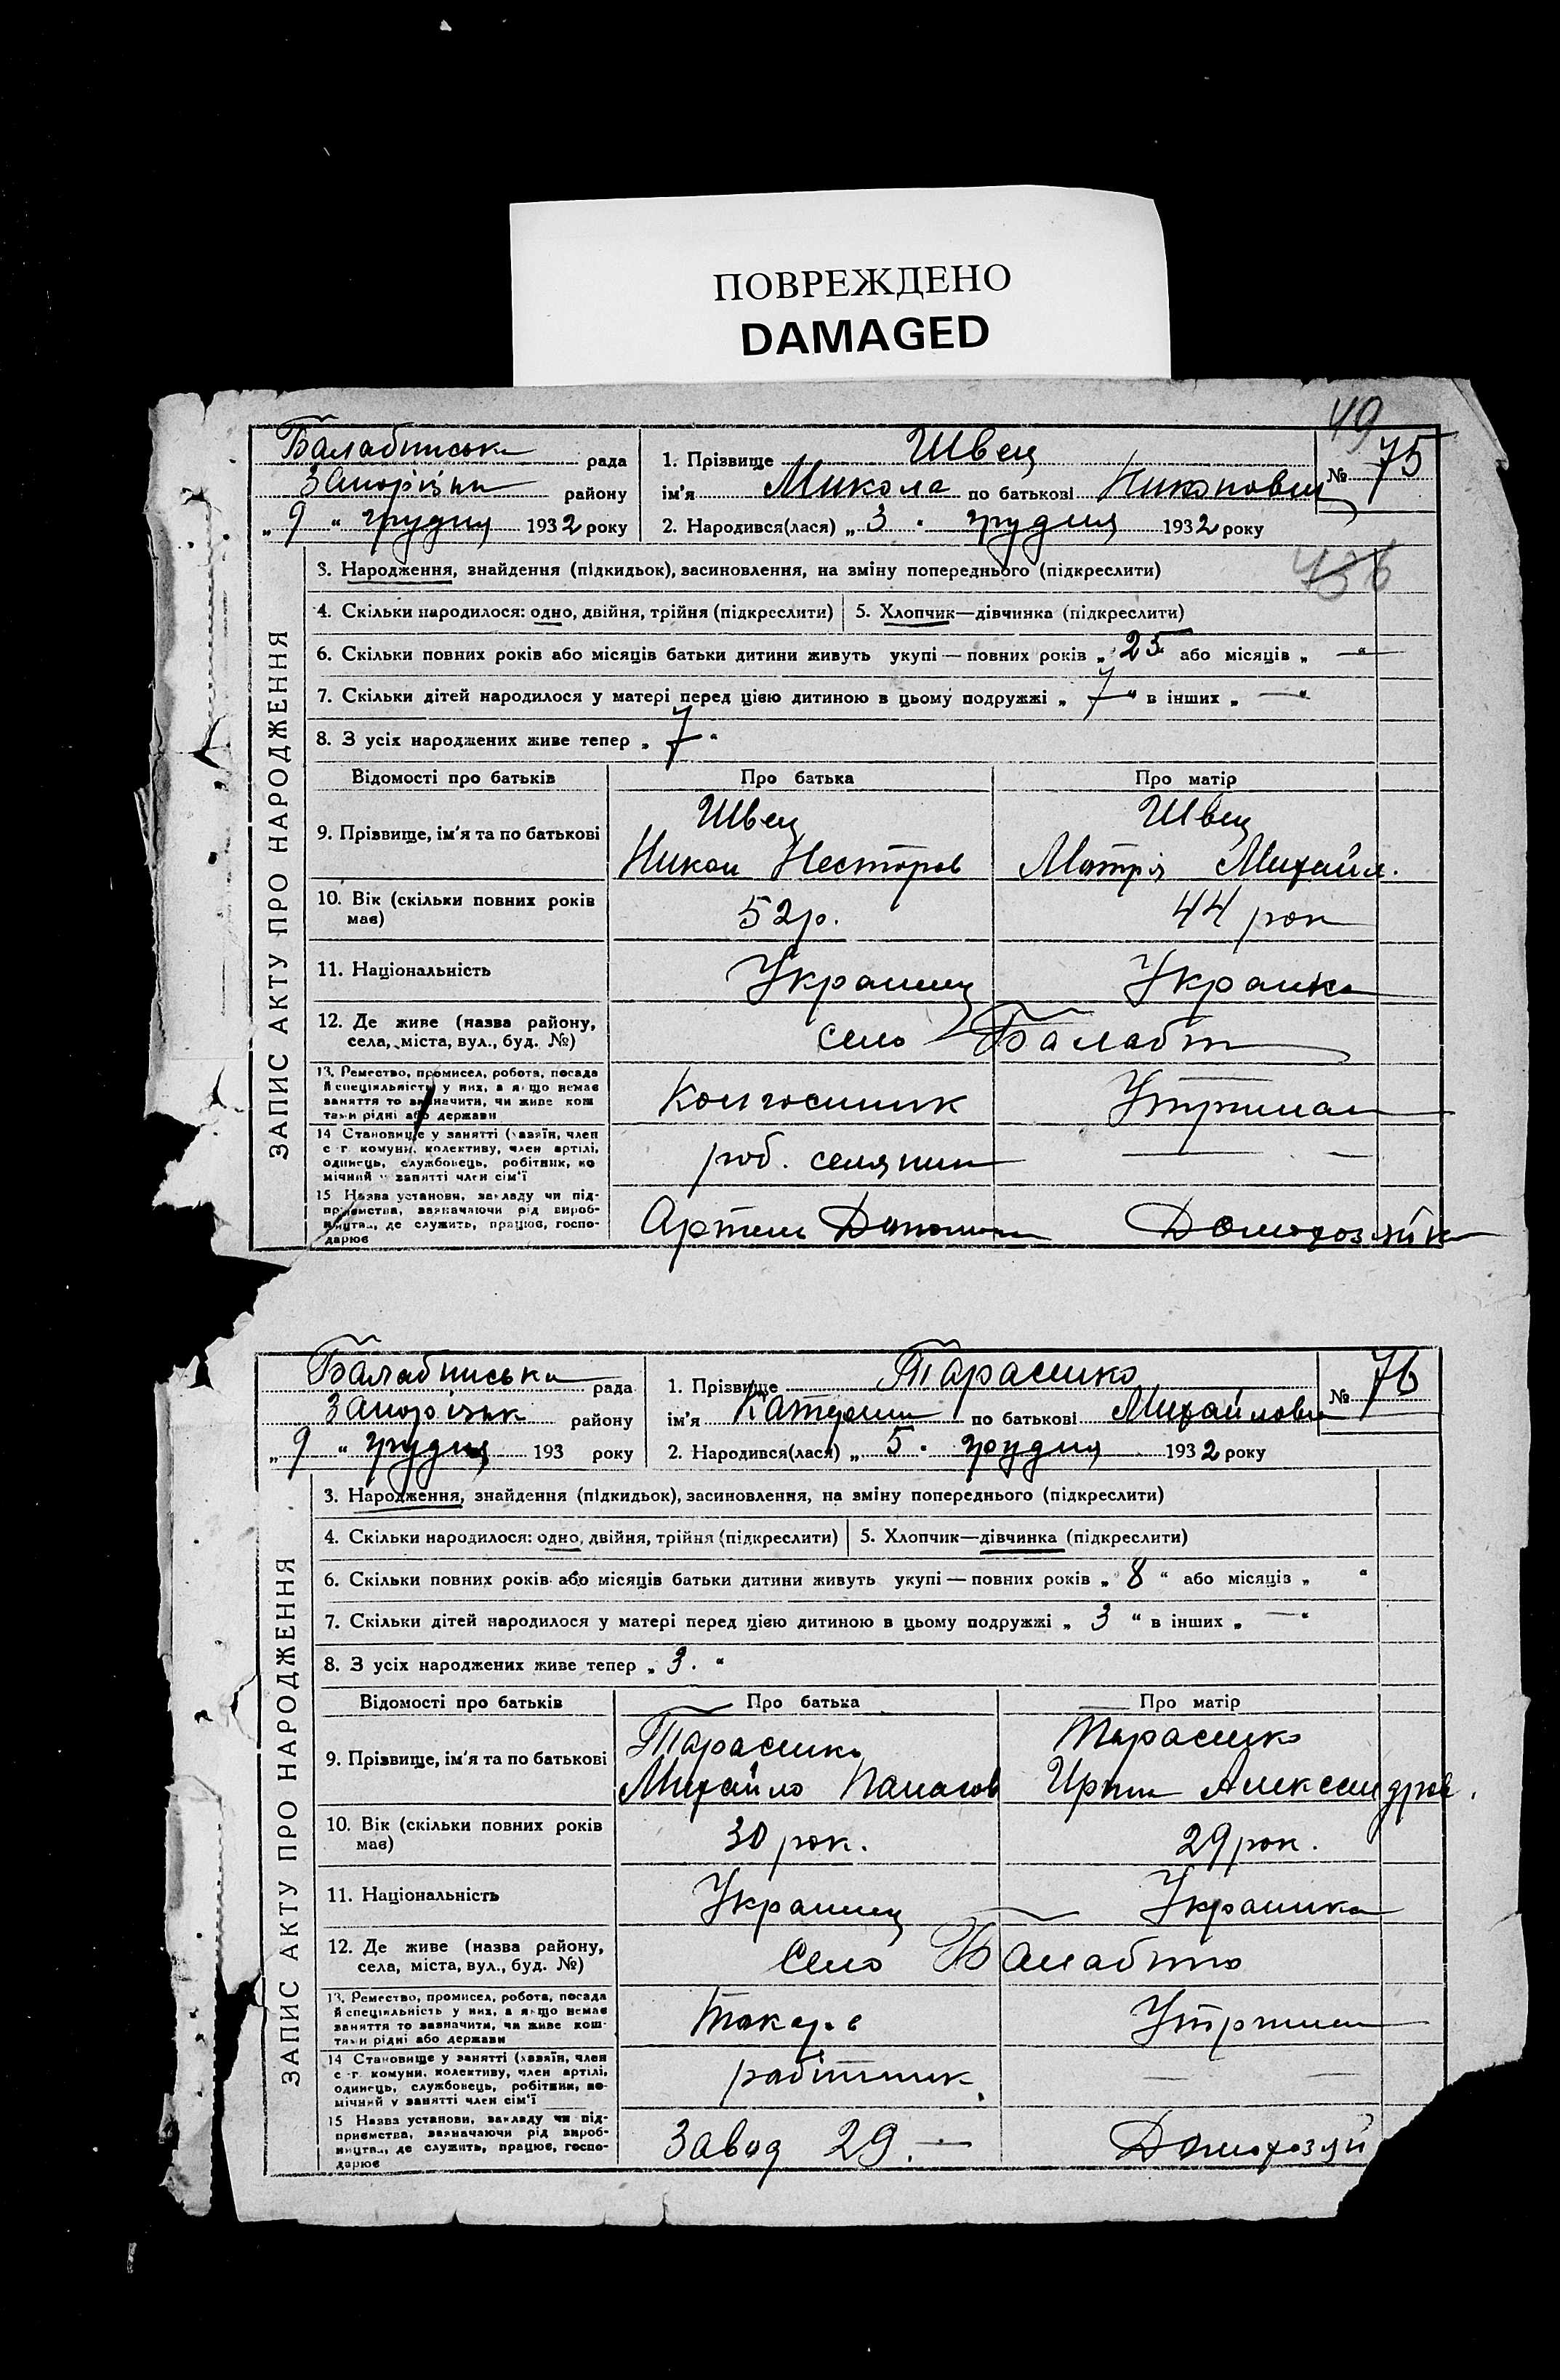 ПОВРЕЖДЕНО
DAMAGED
49
Балабинська рада
Запорізьк району
„ 9 “ грудня 1932 року
1. Прізвище Швец
ім'я Микола по батькові Никонович
№ 75
2. Народився(лася) „ 3 “ грудня 1932 року
436
ЗАПИС АКТУ ПРО НАРОДЖЕННЯ
3. Народження, знайдення (підкидьок), засиновлення, на зміну попереднього (підкреслити)
4. Скільки народилося: одно, двійня, трійня (підкреслити) 5. Хлопчик—дівчинка (підкреслити)
6. Скільки повних років або місяців батьки дитини живуть укупі — повних років „ 25 “ або місяців „ — “
7. Скільки дітей народилося у матері перед цією дитиною в цьому подружжі „ 7 “ в інших „ — “
8. З усіх народжених живе тепер „ 7 “
Відомості про батьків Про батька Про матір
9. Прізвище, ім'я та по батькові
Швец Швец
Никон Несторов Мотря Михайл.
10. Вік (скільки повних років
має)
52р. 44 рок
11. Національність Украинец Украинка
12. Де живе (назва району,
села, міста, вул., буд. №)
село Балабин
13. Ремество, промисел, робота, посада
й спеціяльність у них, а якщо немає
заняття то зазначити, чи живе кош
тами рідні або держави
Колгоспник Утриман
14 Становище у занятті (хазяїн, член
с г. комуни, колективу, член артілі,
одинець, службовець, робітник, по
мічний у занятті член сім'ї
роб. селяник — —
15 Назва установи, закладу чи під-
приємства, зазначаючи рід вироб-
ництва, де служить, працює, госпо-
дарює
Артель Домохозяйк
Балабинська рада
Запорізьк району
„ 9 “ грудня 193 року
1. Прізвище Тарасенко
ім'я Катерина по батькові Михайловн
№ 76
2. Народився(лася) „ 5 “ грудня 1932 року
ЗАПИС АКТУ ПРО НАРОДЖЕННЯ
3. Народження, знайдення (підкидьок), засиновлення, на зміну попереднього (підкреслити)
4. Скільки народилося: одно, двійня, трійня (підкреслити) 5. Хлопчик—дівчинка (підкреслити)
6. Скільки повних років або місяців батьки дитини живуть укупі — повних років „ 8 “ або місяців „ “
7. Скільки дітей народилося у матері перед цією дитиною в цьому подружжі „ 3 “ в інших „ — “
8. З усіх народжених живе тепер „ 3. “
Відомості про батьків Про батька Про матір
9. Прізвище, ім'я та по батькові
Тарасенко Тарасенко
Михайло Панасов Ирина Александров.
10. Вік (скільки повних років
має)
30 рок. 29 рок.
11. Національність Украинец Украинка
12. Де живе (назва району,
села, міста, вул., буд. №)
Село Балабино
13. Ремество, промисел, робота, посада
й спеціяльність у них, а якщо немає
заняття то зазначити, чи живе кош-
тами рідні або держави
Токарь Утриман
14 Становище у занятті (хазяїн, член
с -г. комуни, колективу, член артілі,
одинець, службовець, робітник, по-
мічний у занятті член сім'ї
работник. — —
15 Назва установи, закладу чи під-
приємства, зазначаючи рід вироб-
ництва, де служить, працює, госпо-
дарює
Завод 29. — Домохозяй